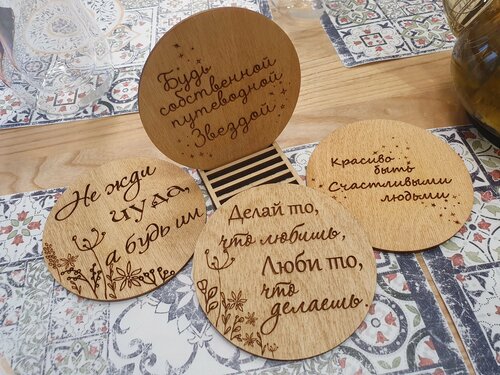 Будь
собственной
путеводной
Звездой
Не жди
чуда,
а будь им
Делай то,
что любишь,
Люби то,
что
делаешь.
Красиво
быть
Счастливыми
людьми